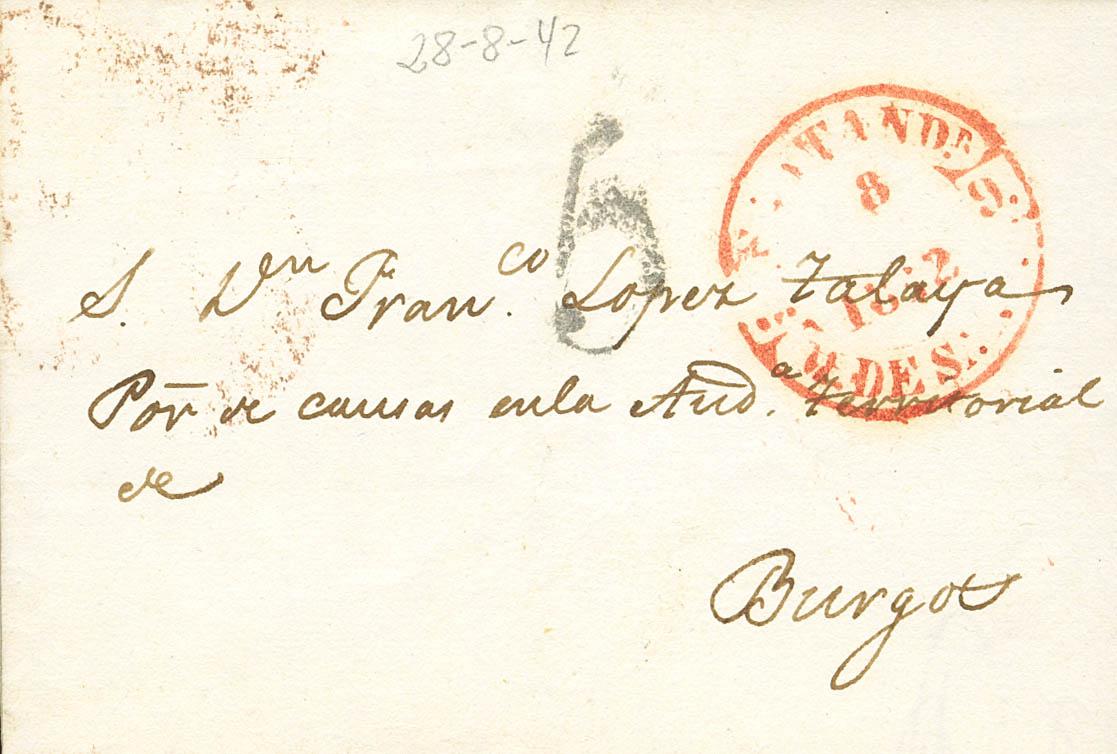 28-8-42
6
8
1842
DE S.
S. Dⁿ Franᶜᵒ. Lopez Zalaya
Por̄ de causas enla Audᵃ. territorial
de
Burgos